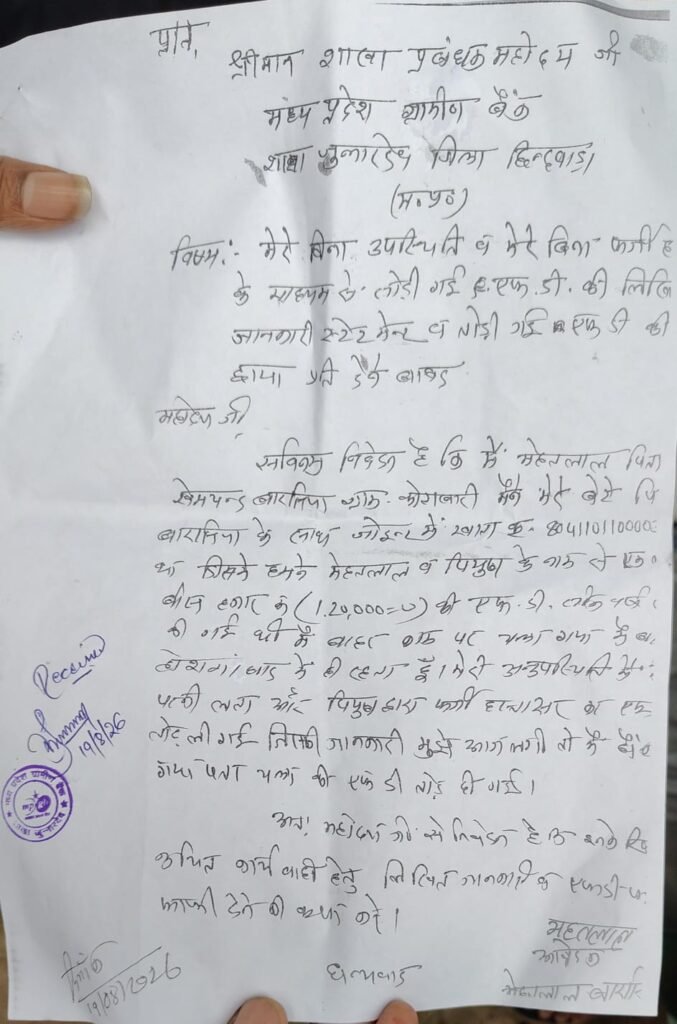 प्रति,
श्रीमान शाखा प्रबंधक महोदय जी
मध्य प्रदेश ग्रामीण बैंक
शाखा जुन्नारदेव जिला छिन्दवाड़ा
(म.प्र.)
विषय:- मेरे बिना उपस्थिति व मेरे बिना फर्जी ह
के माध्यम से तोड़ी गई एफ.डी. की लिखि
जानकारी स्टेटमेन्ट व तोड़ी गई एफ डी की
छाया प्रति देने बाबद
महोदय जी,
सविनय निवेदन है कि मैं मेहतलाल पिता
खेमचन्द बारसिया ग्राम मैंने मेरे बेटे पि
के साथ जोइन्ट में खाता क्र. 80411011000
था जिसमें हमने मेहतलाल व पियुष के नाम से एक
बीस हजार रू (1,20,000=00) की एफ.डी.
की गई थी मैं बाहर काम पर चला गया मैं
में ही रहता हूँ। मेरी अनुपस्थिति में
पत्नी लता और पियुष द्वारा फर्जी हस्ताक्षर कर एफ
तोड़ ली गई जिसकी जानकारी मुझे आज लगी तो मैं बैंक
गया पता चला की एफ डी तोड़ दी गई।
अतः महोदय जी से निवेदन है
उचित कार्यवाही हेतु लिखित जानकारी व एफडी
कापी देने की कृपा करें।
धन्यवाद
मेहतलाल
आवेदक
मेहतलाल
दिनांक
19/08/2026
Received
19/8/26
मध्य प्रदेश ग्रामीण बैंक